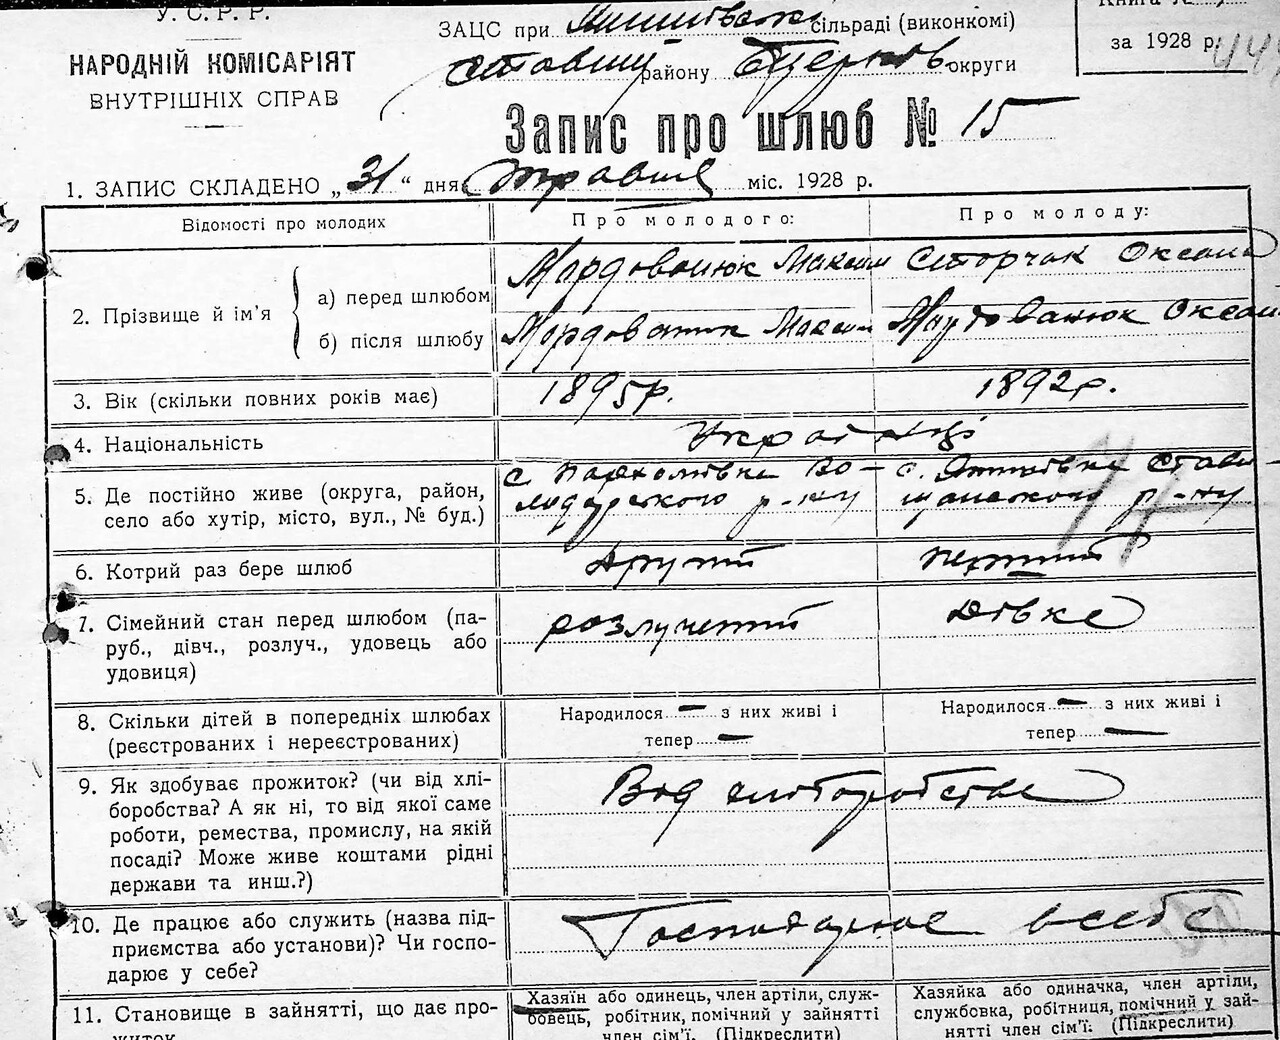 У. С. Р. Р.
НАРОДНІЙ КОМІСАРІЯТ
ВНУТРІШНІХ СПРАВ
ЗАЦС при сільраді (виконкомі)
району округи
за 1928 р.
Запис про шлюб № 15
1. ЗАПИС СКЛАДЕНО „31“ дня травня міс. 1928 р.
Відомості про молодих
Про молодого:
Про молоду:
2. Прізвище й ім'я
а) перед шлюбом
Мардованюк Максим
Сторчак Оксана
б) після шлюбу
Мордованюк Максим
Мардованюк Оксан
3. Вік (скільки повних років має)
1895р.
1892р.
4. Національність
Українці
5. Де постійно живе (округа, район,
село або хутір, місто, вул., № буд.)
с. Пархомівка Во-
лодарського р-ну
с. Стави-
щанського р-ну
6. Котрий раз бере шлюб
другий
перший
7. Сімейний стан перед шлюбом (па-
руб., дівч., розлуч., удовець або
удовиця)
розлучений
Дівка
8. Скільки дітей в попередніх шлюбах
(реєстрованих і нереєстрованих)
Народилося — з них живі і
тепер —
Народилося — з них живі і
тепер —
9. Як здобуває прожиток? (чи від хлі-
боробства? А як ні, то від якої саме
роботи, ремества, промислу, на якій
посаді? Може живе коштами рідні
держави та инш.?)
Від хліборобства
10. Де працює або служить (назва під-
приємства або установи)? Чи госпо-
дарює у себе?
Господарює в себе
11. Становище в зайнятті, що дає про-
житок
Хазяїн або одинець, член артіли, служ-
бовець, робітник, помічний у зайнятті
член сім'ї. (Підкреслити)
Хазяйка або одиначка, член артіли,
службовка, робітниця, помічний у зай-
нятті член сім'ї. (Підкреслити)